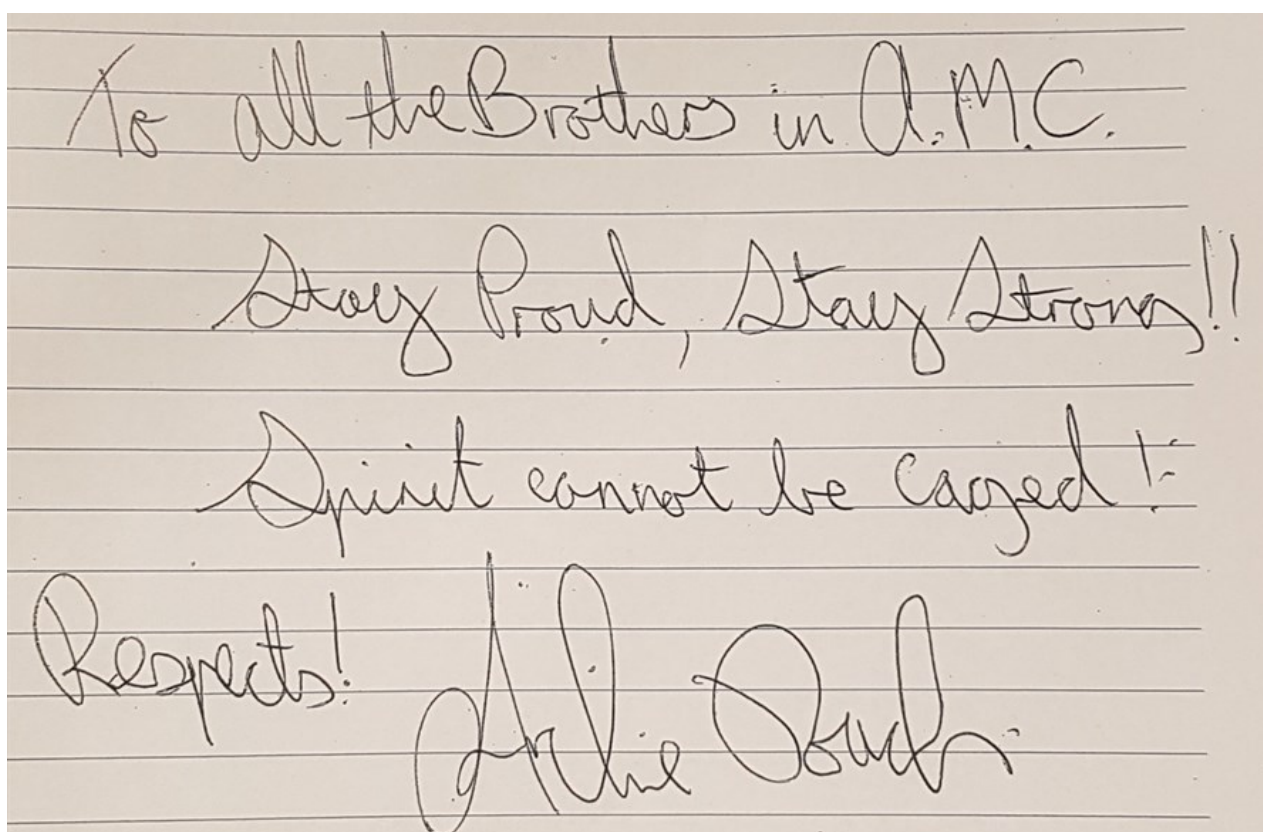 To all the Brothers in A.M.C.
Stay Proud, Stay Strong!!
Spirit cannot be caged!
Respects! Archie Roach